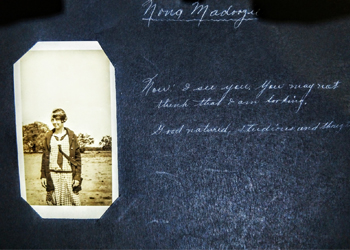 Nona
Now I see you, You may not
think that I am looking.
Good natured, studious and